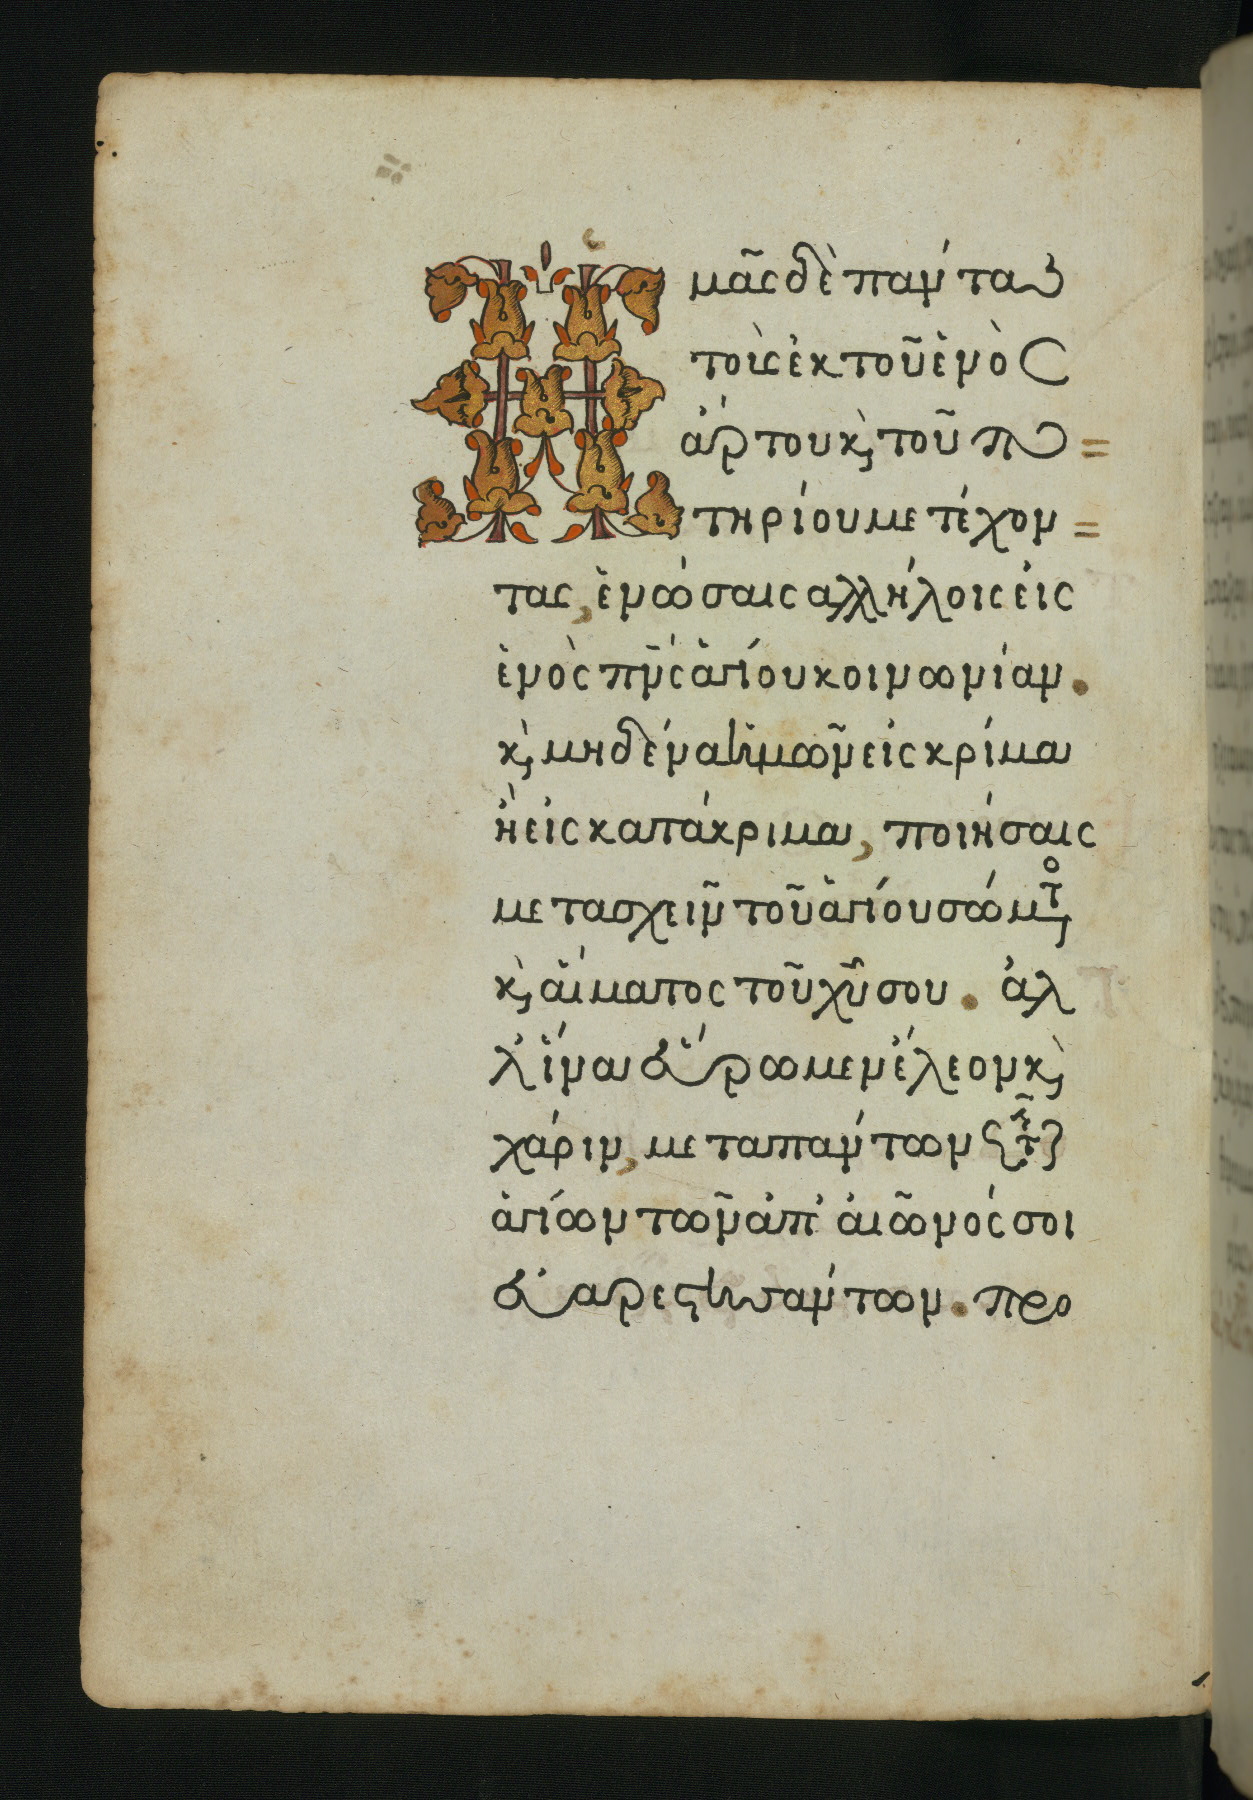 Ἡμᾶς δὲ πάντας
τοὺς ἐκ τοῦ ἑνὸς
ἄρτου κ(αὶ) τοῦ πο=
τηρίου μετέχον=
τας, ἑνώσαις ἀλλήλοις εἰς
ἑνὸς πν(εύματο)ς ἁγίου κοινωνίαν.
κ(αὶ) μηδένα ἡμῶν εἰς κρίμα
ἢ εἰς κατάκριμα, ποιήσαις
μετασχεῖν τοῦ ἁγίου σώματο(ς)
κ(αὶ) αἵματος τοῦ χ(ριστο)ῦ σου. ἀλ
λ' ἵνα εὕρωμεν ἔλεον κ(αὶ)
χάριν, μετὰ πάντων τῶν
ἁγίων τῶν ἀπ' αἰῶνός σοι
εὐαρεστησάντων. προ